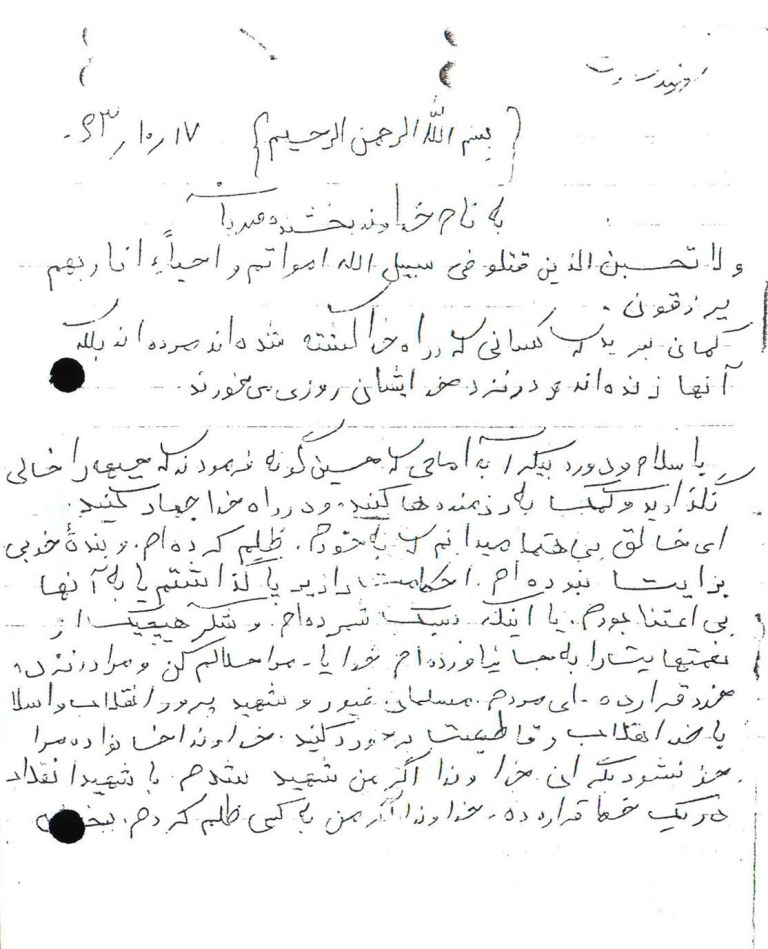 {بسم الله الرحمن الرحیم} ۶۳/۱۰/۱۷
به نام خداوند بخشنده مهربان
ولا تحسبن الذین قتلو فی سبیل الله امواتم و احیاًء انا ربهم
یرزقون.
گمان نبرید که کسانی که در راه خدا کشته شده‌اند مرده‌اند بلکه
آنها زنده‌اند و در نزد خدایشان روزی می‌خورند.
با سلام و درود بیکران به امامی که حسین گونه فرمودند که جبهه‌ها را خالی
نگذارید و کمک به رزمنده‌ها کنید. و در راه خدا جهاد کنید.
ای خالق بی همتا میدانم که به خودم. ظلم کرده‌ام. و بندهٔ خوبی
برایت نبوده‌ام. احکامت را زیر پا گذاشتم یا به آنها
بی اعتنا بودم. یا اینکه سبک شمرده‌ام. و شکر هیچیک از
نعمتهایت را به جا نیاورده‌ام خدایا. مرا حلالم کن و مرا در نزد.
خود قرار ده. ای مردم. مسلمان غیور و شهید پرور انقلاب و اسلا
با ضد انقلاب و قاطعیت برخورد کنید. خداوندا خانواده مرا
خداوندا اگر من شهید شدم. با شهیدا انقلاب
در یک قرار ده. خداوندا اگر من به کسی ظلم کردم.